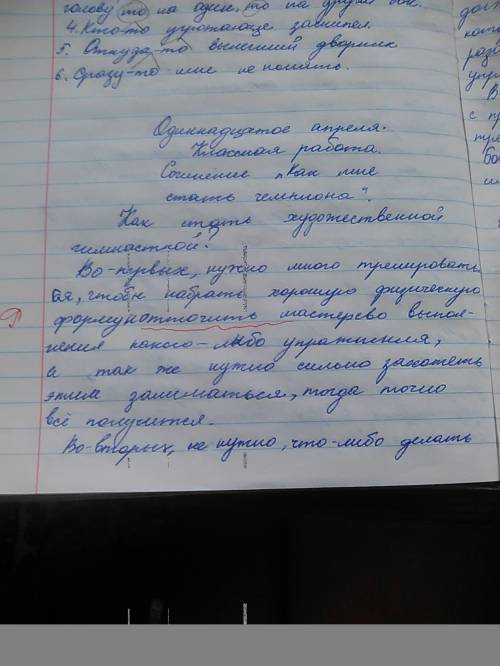 голову то на один, то на другой бок.
4. Кто-то угрожающе зашипел.
5. Откуда-то вышедший дворник
6. Сразу-то мне не понять.
Одиннадцатое апреля.
Классная работа.
Сочинение "Как мне
стать чемпиона".
Как стать художественной
гимнасткой?
Во-первых, нужно много тренировать
ся, чтобы набрать хорошую физическую
форму отточить мастерсво выпол-
нения какого-либо упражнения,
а так же нужно сильно захотеть
этим заниматься, тогда точно
всё получится.
Во-вторых, не нужно, что-либо делать